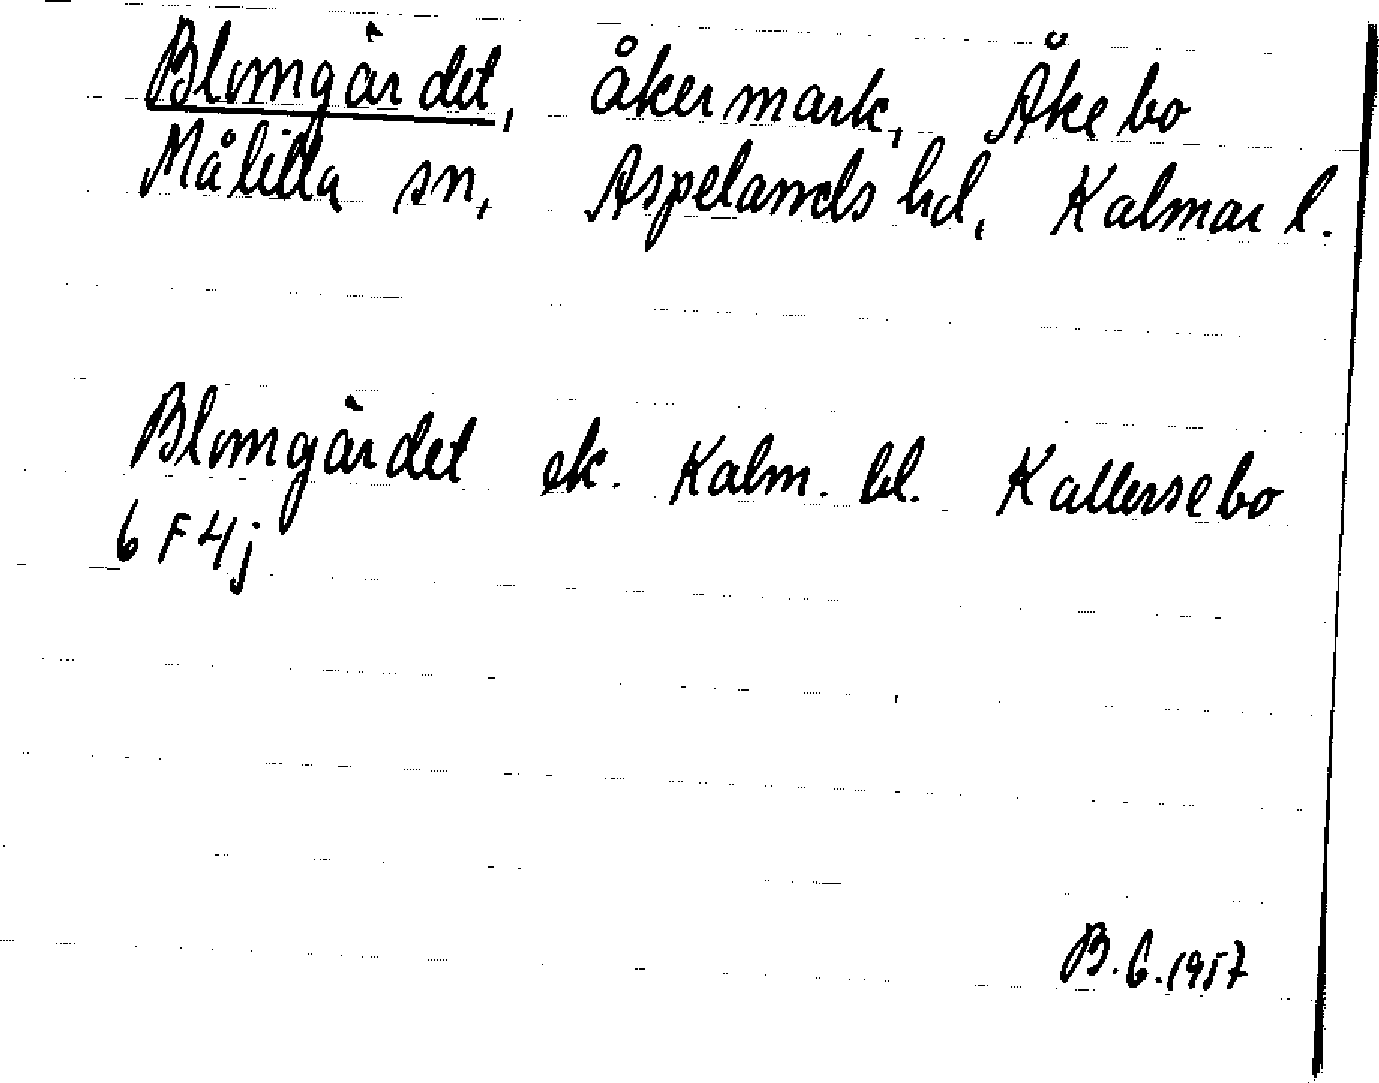 Blomgärdet, åkermark, Åkebo
Målilla sn, Aspelands hd, Kalmar l.
Blomgärdet ek. Kalm. bl. Kallersebo
6 F 4j
B. G. 1957